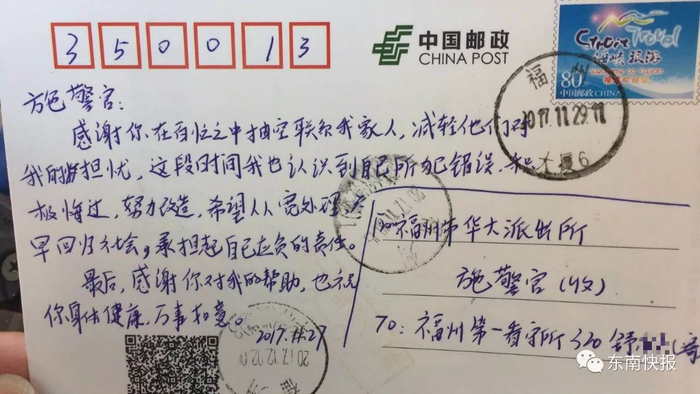 350013
中国邮政
CHINA POST
Strait Travel
海峡旅游
80分
中国邮政 CHINA
方邑警官:
感谢你在百忙之中抽空联系我家人,减轻他们对
我的担忧,这段时间我也认识到自己所犯错误,积
极悔过,努力改造,希望从宽处理,
早回归社会,承担起自己应负的责任。
最后,感谢你对我的帮助,也祝
你身体健康,万事如意。
2017.11.27
福州
2017.11.29.11
大厦6
福州市华大派出所
方邑警官(收)
TO:福州第一看守所320舒
(寄
2017.12.12
东南快报